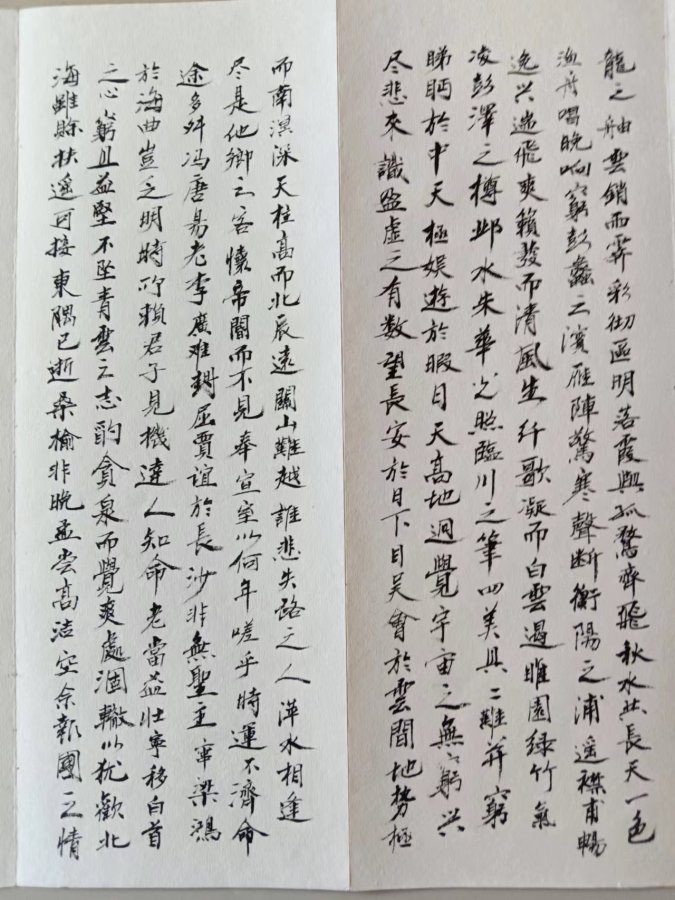 龍之舳雲銷雨霽彩彻區明落霞與孤鶩齊飛秋水共長天一色
渔舟唱晚响窮彭蠡之濱雁陣驚寒聲斷衡陽之浦遥襟甫暢
逸兴遄飛爽籟發而清風生纤歌凝而白雲遏睢園绿竹氣
凌彭澤之樽邺水朱華光照臨川之筆四美具二難并窮
睇眄於中天極娱遊於暇日天高地迥覺宇宙之無窮兴
尽悲来識盈虚之有数望長安於日下目吴會於雲間地势極
而南溟深天柱高而北辰遠關山難越誰悲失路之人萍水相逢
尽是他鄉之客懷帝閽而不見奉宣室以何年嗟乎時運不濟命
途多舛冯唐易老李廣难封屈賈誼於長沙非無聖主窜梁鴻
於海曲豈乏明時所賴君子見機達人知命老當益壮寧移白首
之心窮且益堅不坠青雲之志酌貪泉而覺爽處涸轍以犹歡北
海雖賒扶遥可接東隅已逝桑榆非晚孟尝高洁空余報國之情